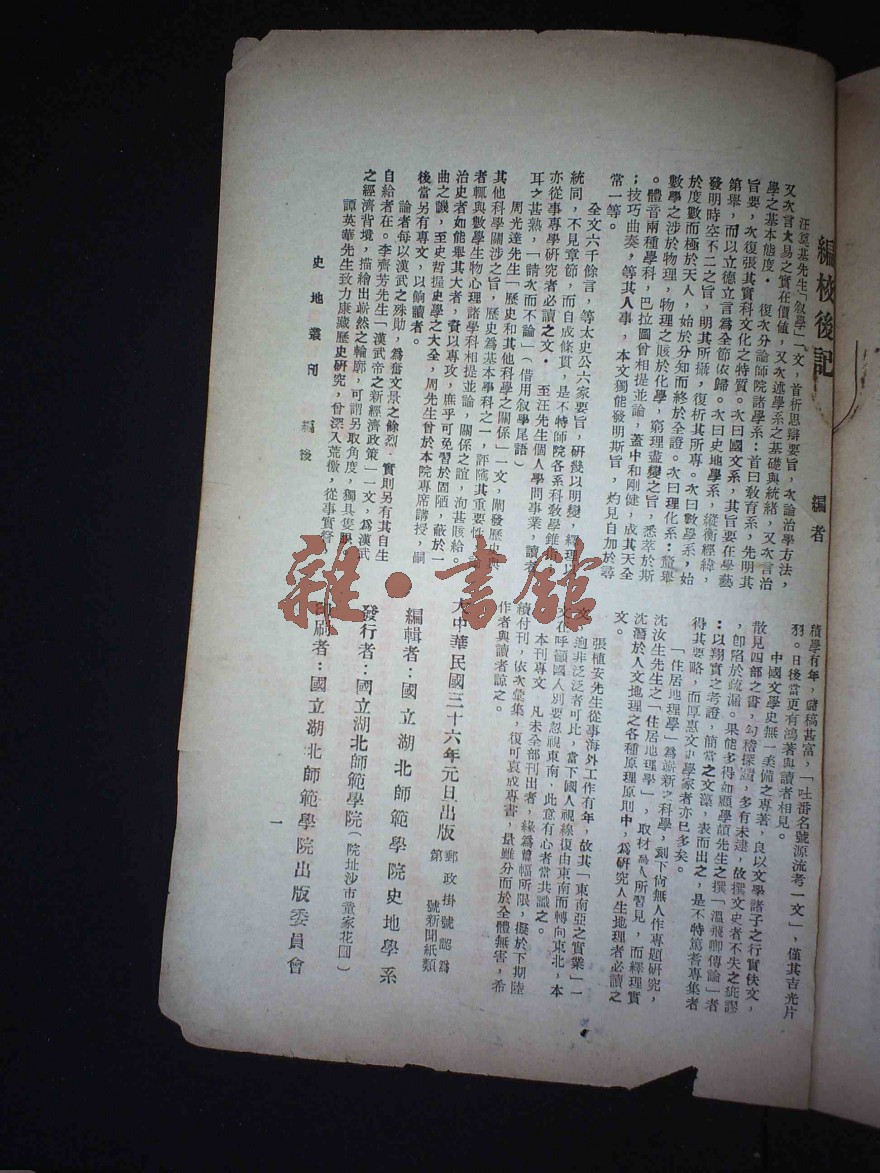 編校後記
編者
汪奠基先生「敘學」一文，首析思辯要旨，次論治學方法，
又次言大易之實在價値，又次述學系之基礎與統緒，又次言治
學之基本態度。復次分論師院諸學系：首曰敎育系，先明其
旨要，次復張其實科文化之特質。次曰國文系，其旨要在學藝
第舉，而以立德立言爲全節依歸。次曰史地學系，縱衡經緯，
發明時空不二之旨，明其所攝，復析其所專。次曰數學系，始
於度數而極於天人，始於分知而終於全證。次曰理化系：並舉
數學之涉於物理，物理之賅於化學，窮理盡變之旨，悉萃於斯
。體音兩種學科，巴拉圖曾相提並論，蓋中和剛健，成其天全
；技巧曲奏，等其人事，本文獨能發明斯旨，灼見自加於尋
常一等。
全文六千餘言，等太史公六家要旨，研幾以明變，經理以
統同，不見章節，而自成條貫，是不特師院各系科敎學錐指
亦從事專學硏究者必讀之文。至汪先生個人學問事業，讀者
耳之甚熟，「請次而不論」（借用敘學尾語）
周光達先生「歷史和其他科學之關係」一文，闡發歷史與
其他科學關涉之旨，歷史爲基本學科之一，評隲其重要性，
者輒與數學生物心理諸學科相提並論，關係之誼，洵甚賅給。
治史者如能舉其大者，賫以專攻，庶乎可免習於固陋，蔽於一
曲之譏，至史哲握史學之大全，周先生曾於本院專席講授，嗣
後當另有專文，以餉讀者。
論者每以漢武之殊勛，爲奮文景之餘烈，實則另有其自生
自給者在。李齊芳先生「漢武帝之新經濟政策」一文，爲漢武
之經濟背境，描繪出嶄然之輪廓，可謂另取角度，獨具隻眼
譚英華先生致力康藏歷史研究，曾深入荒徼，從事實督
史地叢刊 編後
積學有年，儲稿甚富，「吐番名號源流考一文」，僅其吉光片
羽。日後當更有鴻著與讀者相見。
中國文學史無一美備之專著，良以文學諸子之行實佚文，
散見四部之書，勾稽探蹟，多有未逮，故撰文史者不失之疵謬
，卽陷於疏漏。果能多得如顧學頡先生之撰「溫飛卿傳論」者
：以翔實之考證，簡當之文藻，表而出之，是不特篤耆專集者
得其要略，而厚惠文史學家者亦已多矣。
「住居地理學」爲嶄新之科學，刻下尙無人作專題硏究，
沈汝生先生之「住居地理學」，取材爲人所習見，而繹理實
沈潛於人文地理之各種原理原則中，爲硏究人生地理者必讀之
文。
張植安先生從事海外工作有年，故其「東南亞之實業」一
文，洵非泛泛者可比，當下國人視線復由東南而轉向東北，本
文在呼籲國人別要忽視東南，此意有心者當共識之。
本刊專文，凡未全部刊出者，緣爲篇幅所限，擬於下期陸
續付刊，依次彙集，復可裒成專書，量雖分而於全體無害，希
作者與讀者諒之。
大中華民國三十六年元旦出版
郵政掛號認爲
第 號新聞紙類
編輯者：國立湖北師範學院史地學系
發行者：國立湖北師範學院（院址沙市童家花園）
印刷者：國立湖北師範學院出版委員會
一
雜·書館